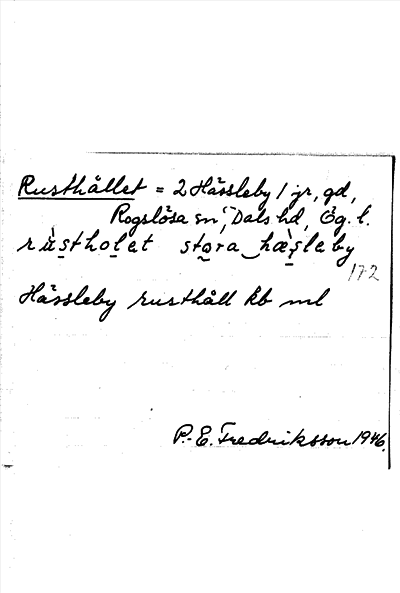 Rusthållet = 2 Hässleby 1 jr, gd,
Rogslösa sn, Dals hd, Ög. l.
rùstholet stora hæ̀sleby
172
Hässleby rusthåll kb ml
P.-E. Fredriksson 1946.